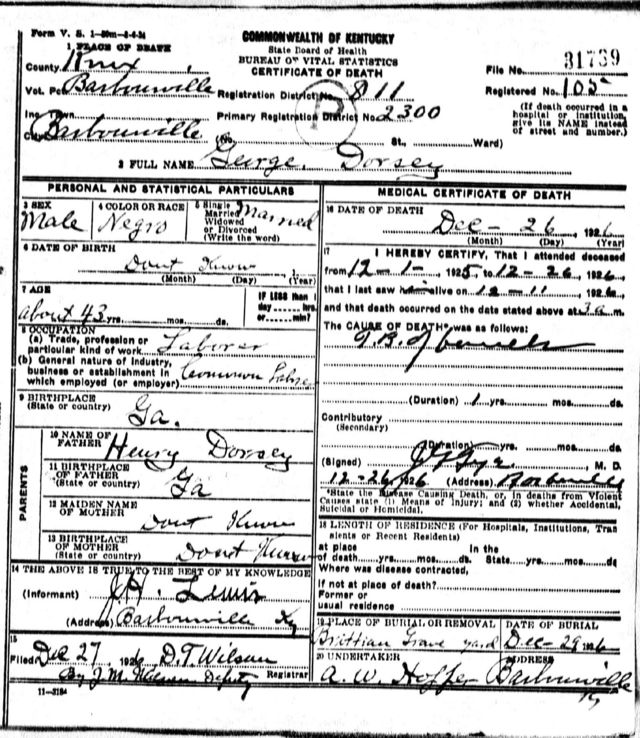 Form V. S. 1-50m-8-4-24
COMMONWEALTH OF KENTUCKY
State Board of Health
BUREAU OF VITAL STATISTICS
CERTIFICATE OF DEATH
File No. 31769
Registered No. 105
(If death occurred in a hospital or institution, give its NAME instead of street and number.)
1 PLACE OF DEATH
County Knox
Vot. Pct Barbourville Registration District No. 811
Inc. Town Primary Registration District No. 2300
City Barbourville (No. St., Ward)
2 FULL NAME George Dorsey
PERSONAL AND STATISTICAL PARTICULARS
3 SEX Male
4 COLOR OR RACE Negro
5 Single Married Widowed or Divorced (Write the word) Married
6 DATE OF BIRTH
Dont Know , 1
(Month) (Day) (Year)
7 AGE
about 43 yrs. mos. ds.
IF LESS than 1 day hrs. or min.?
8 OCCUPATION
(a) Trade, profession or particular kind of work Laborer
(b) General nature of industry, business or establishment in which employed (or employer) Common Labor
9 BIRTHPLACE
(State or country) Ga.
PARENTS
10 NAME OF FATHER Henry Dorsey
11 BIRTHPLACE OF FATHER (State or country) Ga
12 MAIDEN NAME OF MOTHER Dont Know
13 BIRTHPLACE OF MOTHER (State or country) Dont Know
14 THE ABOVE IS TRUE TO THE BEST OF MY KNOWLEDGE
(Informant) J.H. Lewis
(Address) Barbourville Ky
15
Filed Dec 27, 1926 D.T. Wilson Registrar
By J.M. Deputy
11-3184
MEDICAL CERTIFICATE OF DEATH
16 DATE OF DEATH
Dec - 26, 1926
(Month) (Day) (Year)
17 I HEREBY CERTIFY, That I attended deceased
from 12-1-, 1925, to 12-26, 1926,
that I last saw him alive on 12-11, 1926,
and that death occurred on the date stated above at 3 a m.
The CAUSE OF DEATH* was as follows:
T.B. of
(Duration) 1 yrs. mos. ds.
Contributory
(Secondary)
(Duration) yrs. mos. ds.
(Signed) M. D.
12-26, 1926 (Address) Barbourville
*State the Disease Causing Death, or, in deaths from Violent Causes state (1) Means of Injury; and (2) whether Accidental, Suicidal or Homicidal.
18 LENGTH OF RESIDENCE (For Hospitals, Institutions, Transients or Recent Residents)
at place of death yrs. mos. ds. In the State yrs. mos. ds
Where was disease contracted,
If not at place of death?
Former or usual residence
19 PLACE OF BURIAL OR REMOVAL Brittian Grave yard
DATE OF BURIAL Dec - 29 1926
20 UNDERTAKER A. W. Hopper
ADDRESS Barbourville Ky